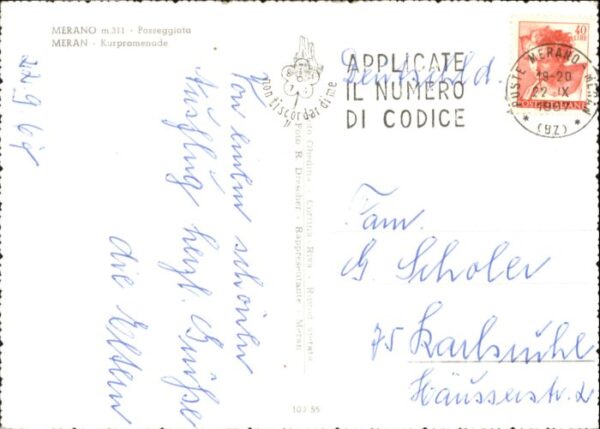 MERANO m.311 - Passeggiata
MERAN - Kurpromenade
22.9.67
Von einem schönen
Ausflug herzl. Grüße
die Eltern
non ti scordar di me
APPLICATE
IL NUMERO
DI CODICE
POSTE MERANO MERAN
19-20
22 IX
1967
(BZ)
40
LIRE
Foto Ghedina - Cortina Riva - Riprod. vietata
Foto R. Drescher - Rappresentante - Meran
103 55
Deutschld.
Fam.
G. Scholer
75 Karlsruhe
Häusserstr. 2